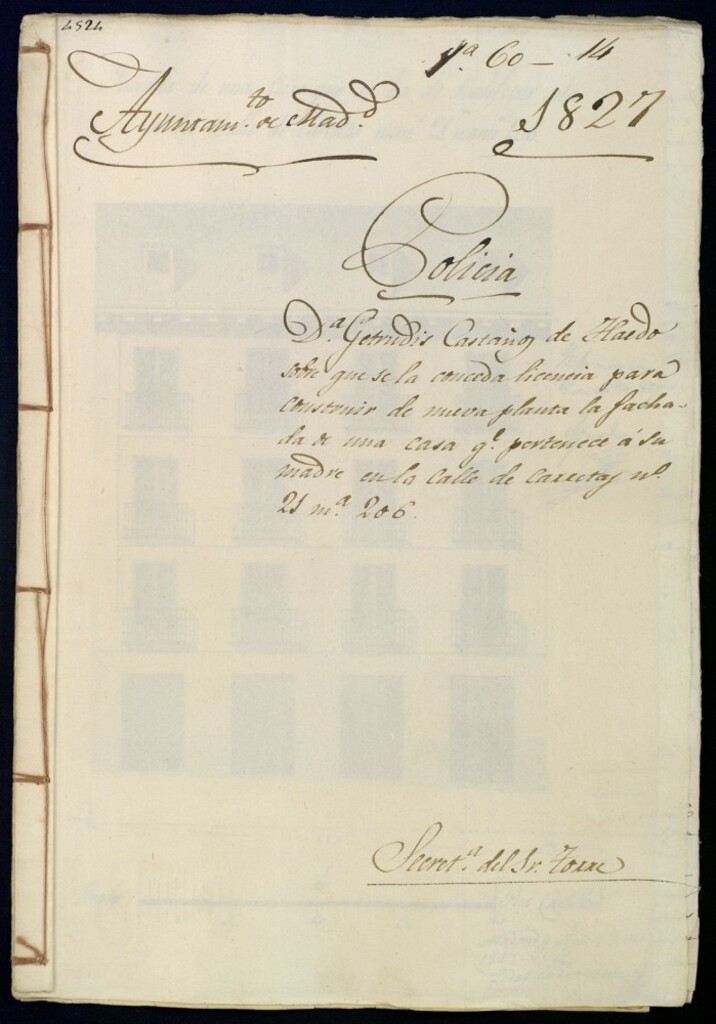 4524
1ª 60 - 14
Ayuntam.to de Mad.d 1827
Policia
D.ª Getrudis Castaños de Haedo
sobre que se la conceda licencia para
construir de nueva planta la facha-
da de una casa q.e pertenece á su
madre en la Calle de Carretas n.º
21 m.ª 206.
Secret.ª del Sr. Torre